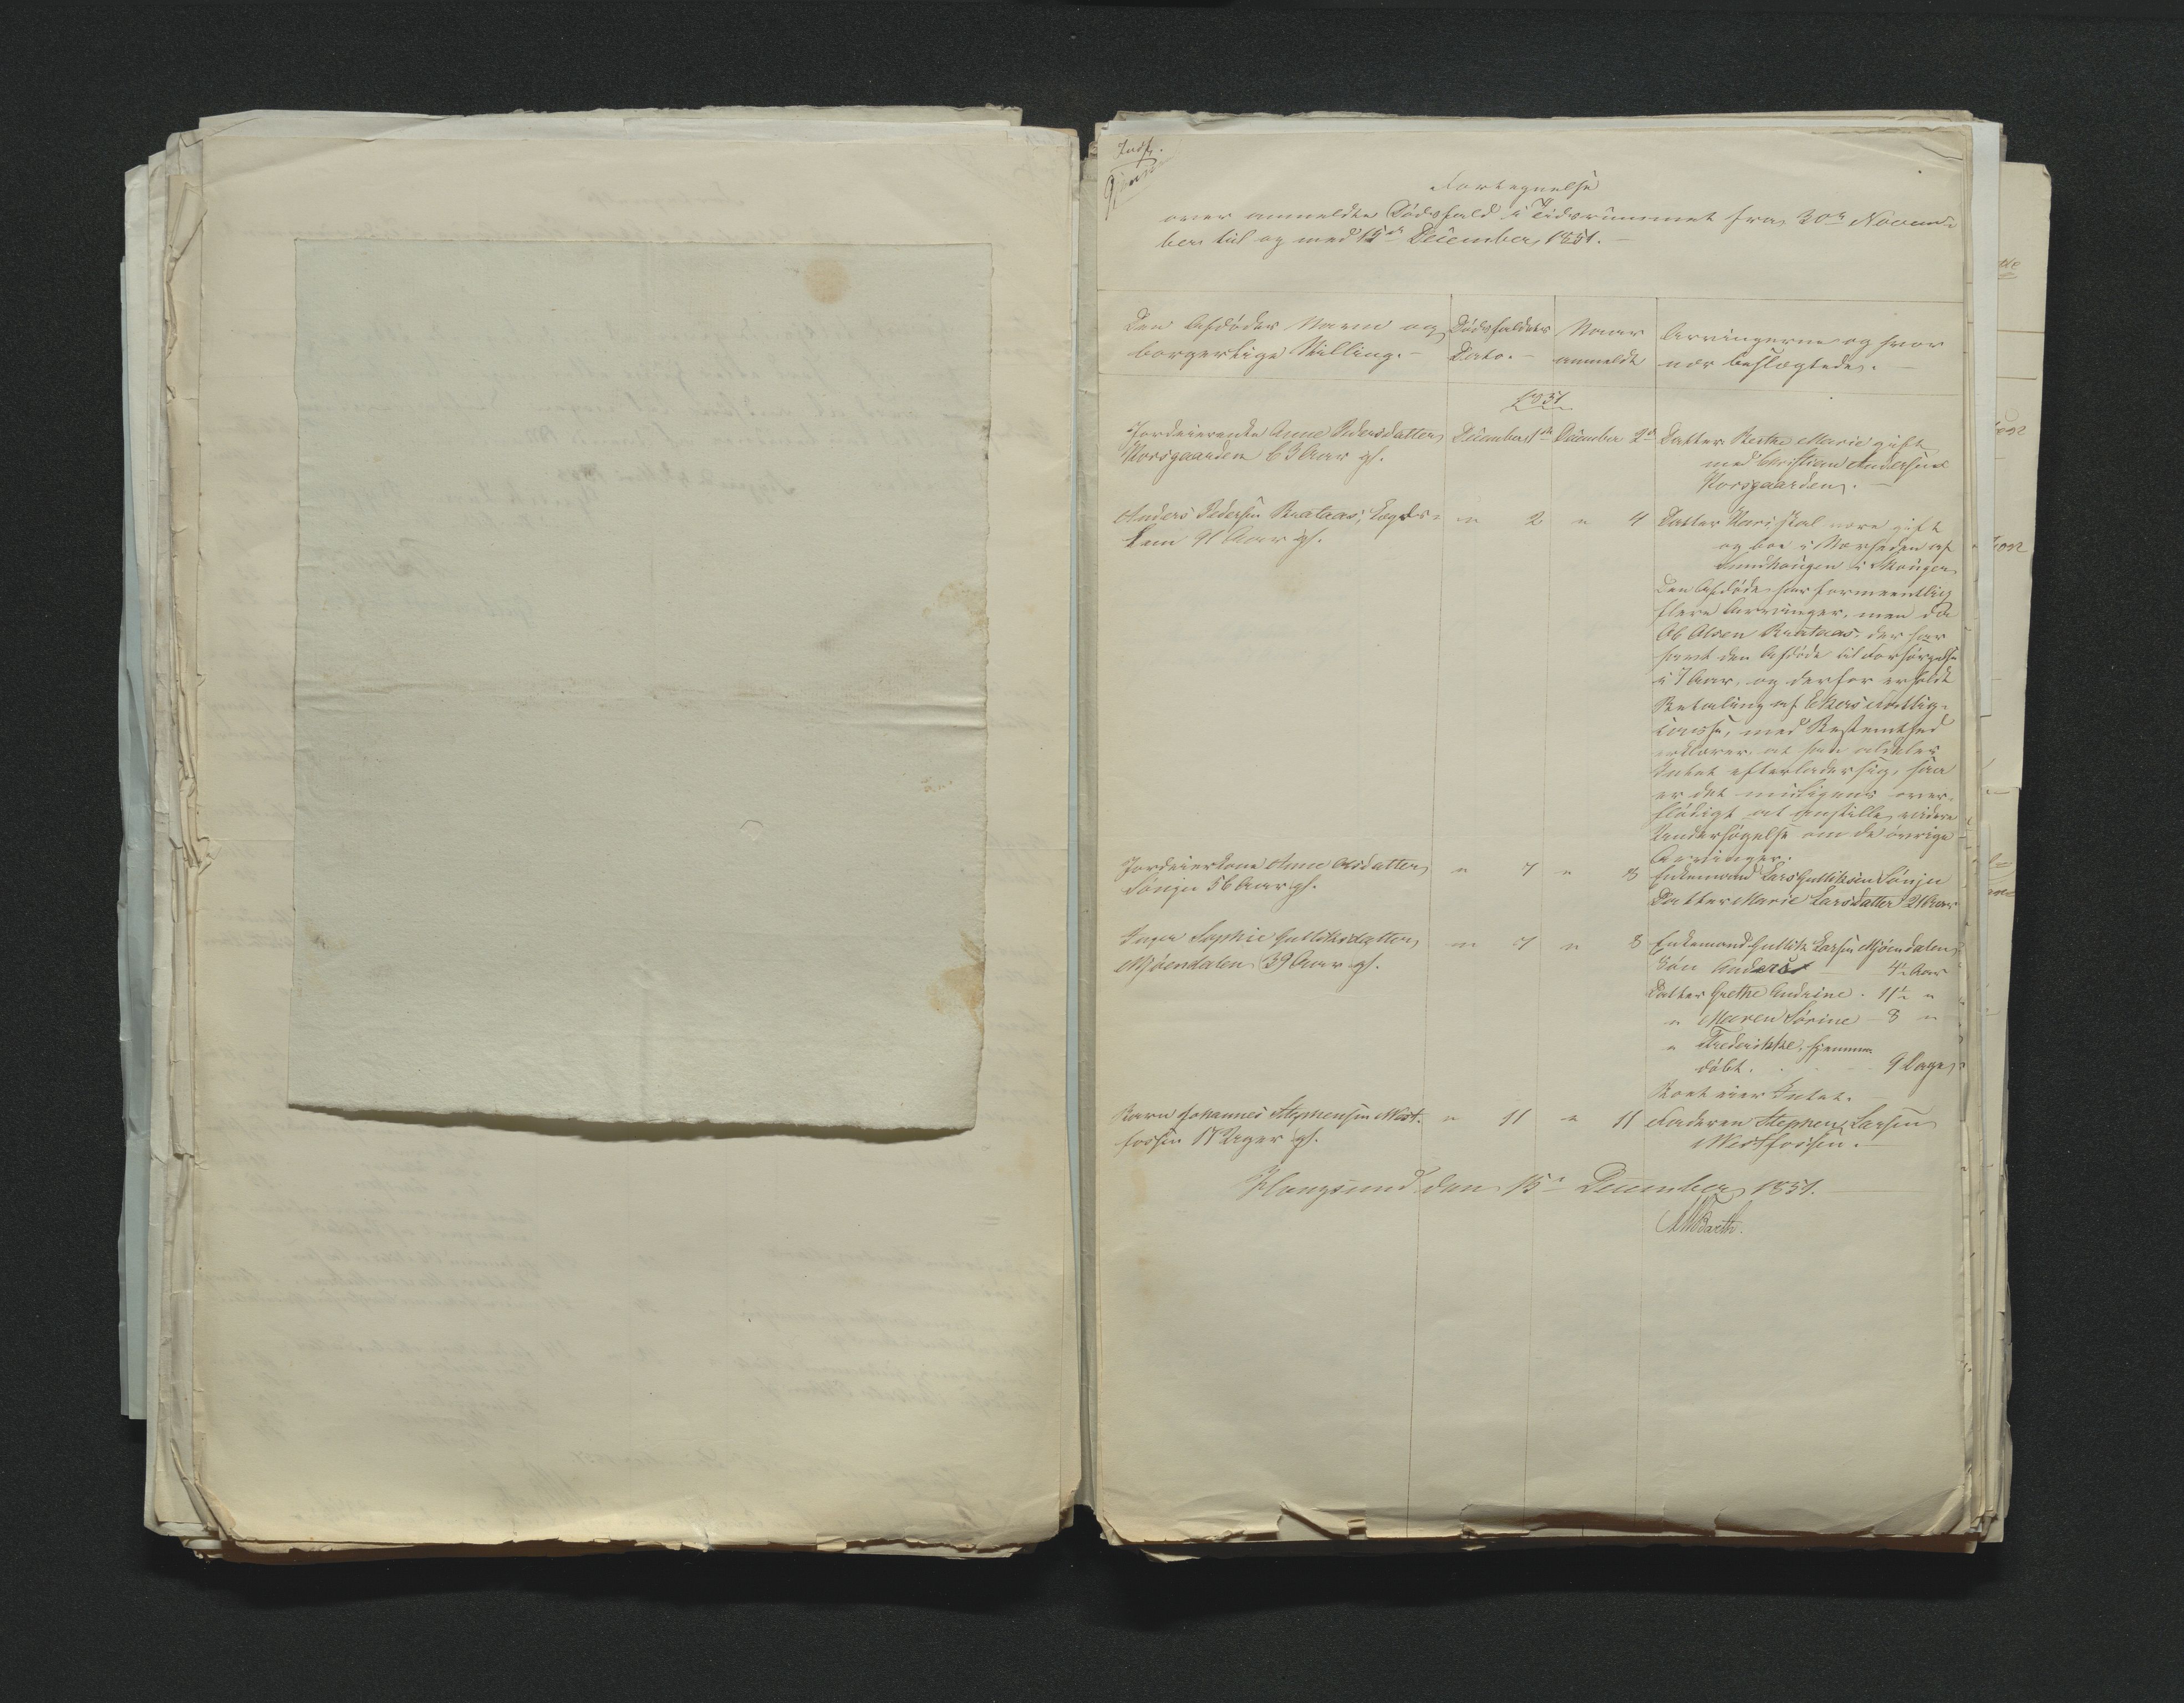 Indf.
Fortegnelse
over anmeldte Dødsfald i Tidsrummet fra 30te Novem-
ber til og med 15de December 1851.
Den Afdødes Navn og
borgerlige Stilling.
Dødsfaldets
Dato.
Naar
anmeldt
Arvingerne og hvor
nær beslægtede.
1851
Jordeierenke Anne Pedersdatter
Korsgaarden 63 Aar gl.
December 1ste
December 2den
Datter Berthe Marie gift
med Christian Andersen
Korsgaarden.
Anders Pedersen Braataas, Lægds-
lem 91 Aar gl.
" 2
" 4
Datter Kari skal være gift
og boe i Nærheden af
i Skouger
Den Afdøde har formeentlig
flere Arvinger, men da
Ole Olsen Braataas, der har
havt den Afdøde til Forsørgelse
i 7 Aar, og derfor erholdt
Betaling af Ekers Fattig-
casse, med Bestemthed
erklærer at han aldeles
Intet efterlader sig, saa
er det muligens over-
flødigt at anstille videre
Undersøgelse om de øvrige
Arvinger.
Jordeierkone Anne Olsdatter
Sønju 56 Aar gl.
" 7
" 8
Enkemand Lars Gulliksen Sønju
Datter Marie Larsdatter 21 Aar
Inger Sophie Gulliksdatter
Mjøendalen 39 Aar gl.
" 7
" 8
Enkemand Gullik Larsen Mjøendalen
Søn Anders 4½ Aar
Datter Grethe Andrine 11½ "
" Maren Sørine 8 "
" Frederikke, hjemme
døbt. 9 Dage
Boet eier Intet.
Barn Johannes Stephensen Vest-
fossen 17 Uger gl.
" 11
" 11
Faderen Stephen Larsen
Vestfossen.
Hougsund den 15de December 1851.
Barth.